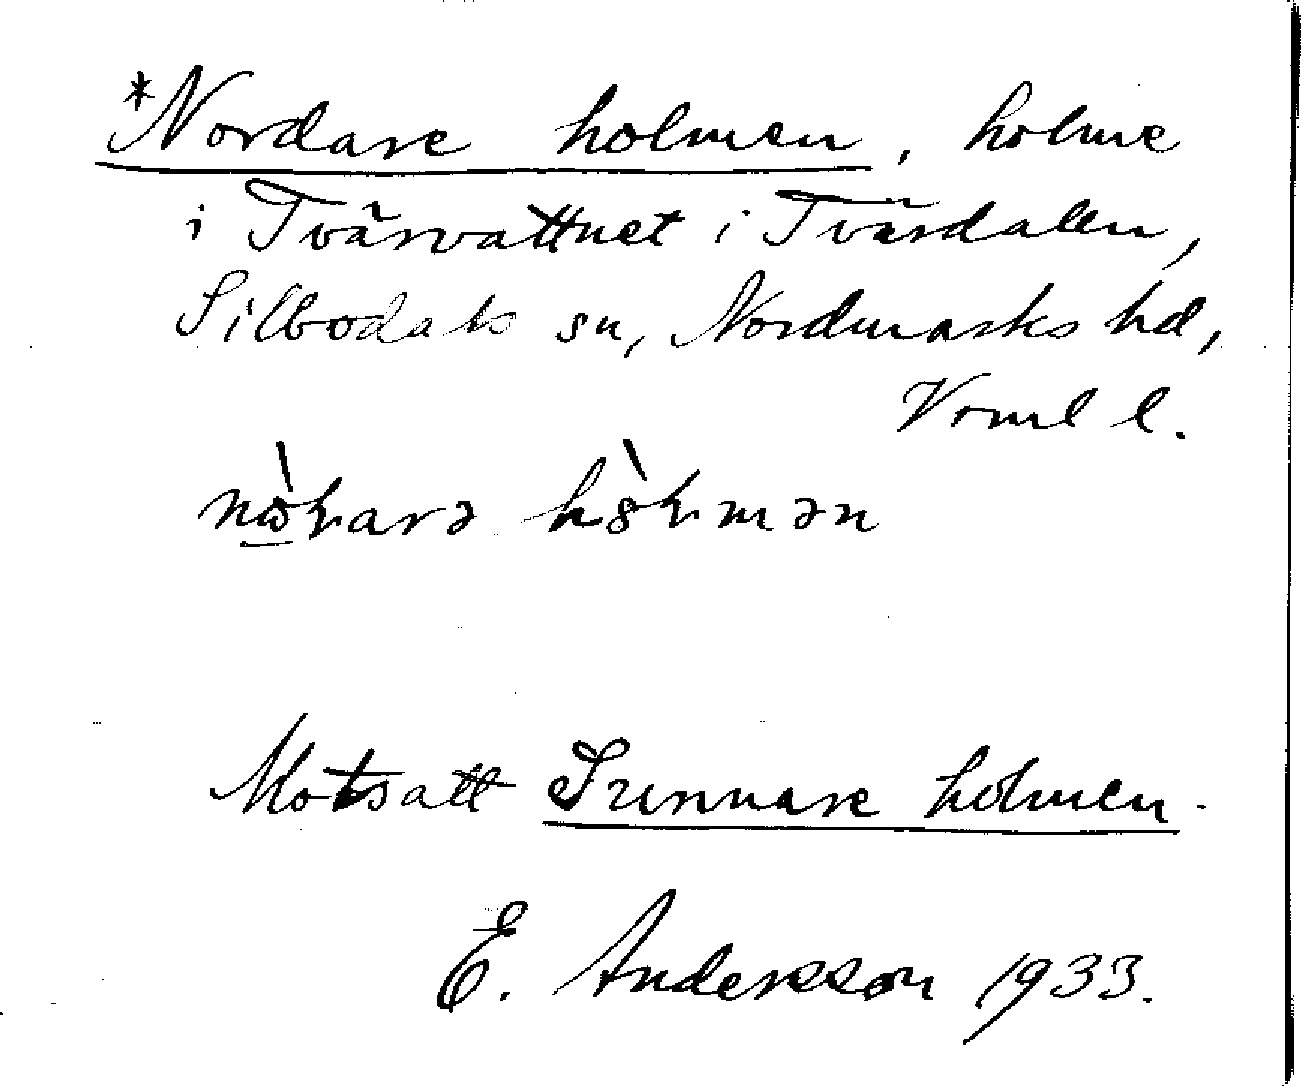 *Nordare holmen, holme
i Tvärvattnet i Tvärdalen,
Silbodals sn, Nordmarks hd,
Vrml l.
Motsatt Sunnare holmen.
E. Andersson 1933.